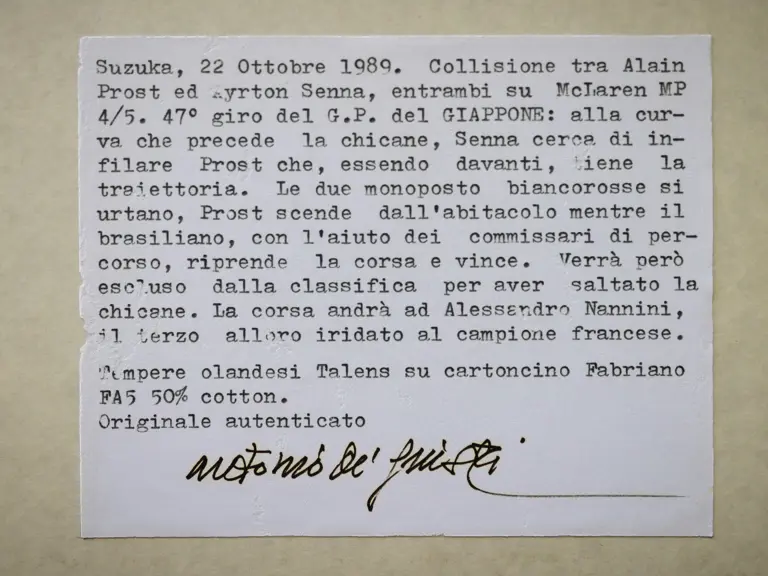 Suzuka, 22 Ottobre 1989. Collisione tra Alain
Prost ed Ayrton Senna, entrambi su McLaren MP
4/5. 47° giro del G.P. del GIAPPONE: alla cur-
va che precede la chicane, Senna cerca di in-
filare Prost che, essendo davanti, tiene la
traiettoria. Le due monoposto biancorosse si
urtano, Prost scende dall'abitacolo mentre il
brasiliano, con l'aiuto dei commissari di per-
corso, riprende la corsa e vince. Verrà però
escluso dalla classifica per aver saltato la
chicane. La corsa andrà ad Alessandro Nannini,
il terzo alloro iridato al campione francese.
Tempere olandesi Talens su cartoncino Fabriano
FA5 50% cotton.
Originale autenticato
antonio de' giusti